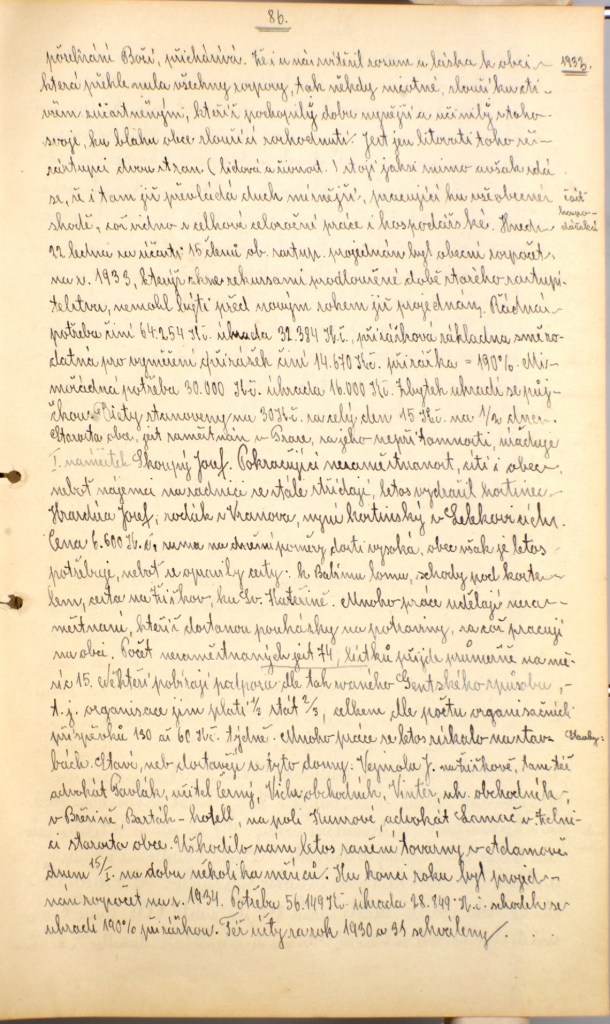 86.
požehnání Boží, přichází. Že i u nás vítězil rozum a láska k obci - 1933.
která přehlenula všechny rozpory, tak někdy nicotné, slouží ku cti
všem zúčastněným, kteří pochopily dobu nynější a učinily z toho
svoje, ku blahu obce sloužící rozhodnutí. Jest jen litovati toho že
zástupci dvou stran (lidová a živnod.) stojí jaksi mimo avšak zdá
se, že i tam již převládá duch mírnější, pracující ku všeobecné
shodě, což vidno z celkové celoroční práce i hospodářské. Hned
22 ledna za účasti 15 členů ob. zastup. projednán byl obecní rozpočet
na r. 1933, kterýž skrze rekursami prodloužené době starého zastupi-
telstva, nemohl býti před novým rokem již projednán. Řádná
potřeba činí 64.254 Kč úhrada 32.384 Kč, přirážková základna směro-
datná pro vyměření přirážek činí 14.670 Kč. přirážka = 190%. Mi-
mořádná potřeba 30.000 Kč. úhrada 16.000 Kč. Zbytek uhradí se půj-
čkou. Diety stanoveny na 30 Kč. za celý den 15 Kč. na 1/2 dne.
Starosta obce, jest zaměstnán v Praze, za jeho nepřítomnosti, úřaduje
I. náměstek Skoupý Josef. Pokračující nezaměstnanost, cítí i obec,
neboť nájemci na radnici se stále střídají, letos vydražil hostinec
Hrardira Josef, rodák z Vranova, nyní hostinský v Lelekovicích.
Cena 6.600 Kč, suma na dnešní poměry dosti vysoká, obec však je letos
potřebuje, neboť se opravily cesty: k Bahímu lomu, schody pod koste-
lem, cesta na Žižkov, ku Sv. Kateřině. Mnoho práce udělají neza-
městnaní, kteříž dostanou poukázky na potraviny, za což pracují
na obci. Počet nezaměstnaných jest 74, lístků přijde průměrně na mě-
síc 15. Někteří pobírají podpora dle tak zvaného Gentského způsobu, -
t. j. organisace jim platí 1/3 stát 2/3, celkem dle počtu organisačních
příspěvků 130 až 60 Kč. týdně. Mnoho práce se letos získalo na stav- Stavby:
bách. Staví, neb dostavějí se tyto domy: Vejmola J. na Žižkově, tam též
advokát Pavlák, učitel Černý, Vícha obchodník, Vinter, uh. obchodník,
v Březině, Barták - hotell, na poli Kunrové, advokát Lamač v Zelni-
ci starosta obce. Uškodilo nám letos zavření továrny v Adamově
dnem 15/I. na dobu několika měsíců. Ku konci roku byl projed-
nán rozpočet na r. 1934. Potřeba 56.149 Kč úhrada 28.849 Kč. schodek se
uhradí 190% přirážkou. Též účty za rok 1930 a 31 schváleny. . . .